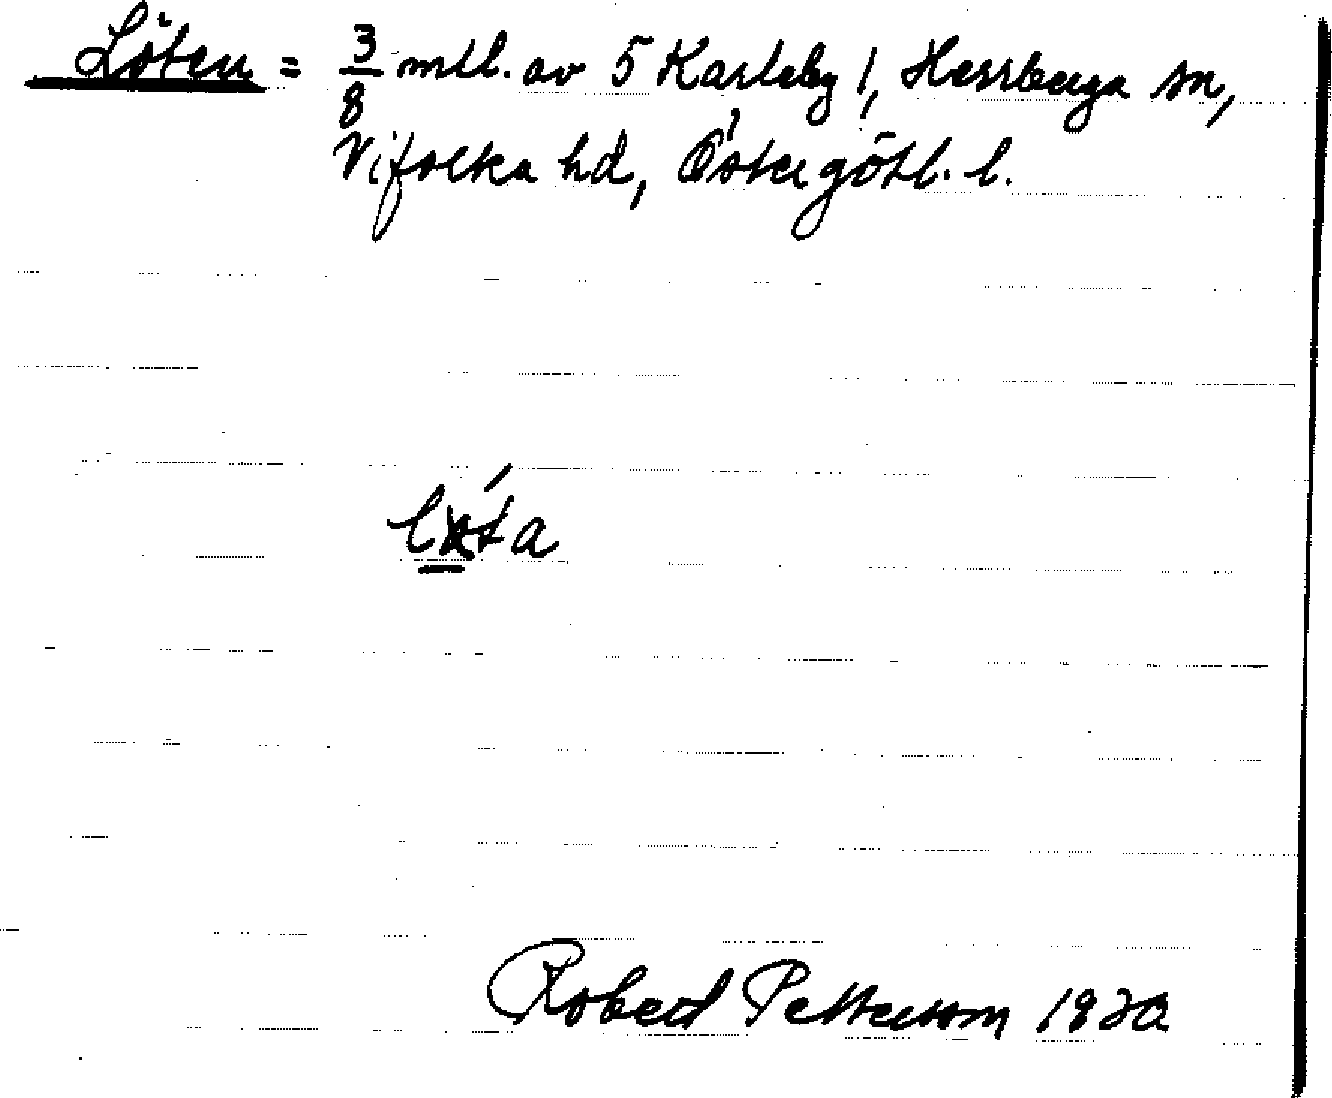 Löten = 3/8 mtl. av 5 Karleby 1, Herrberga sn,
Vifolka hd, Östergötl. l.
Robert Petterson 1920